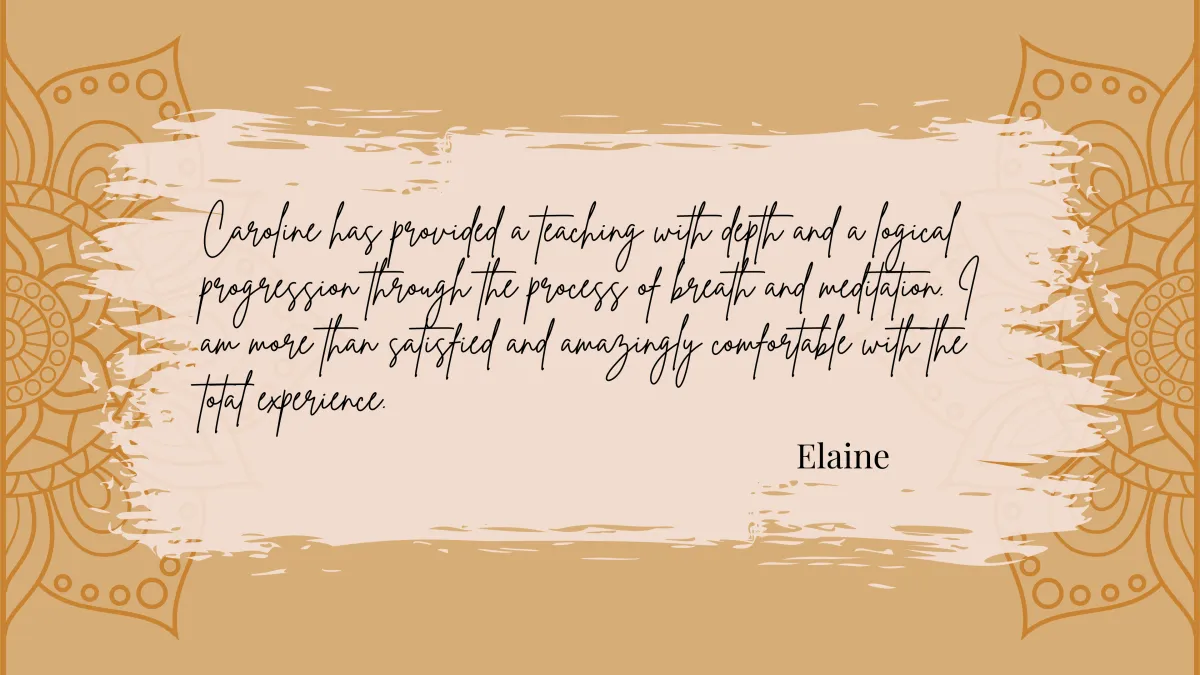 Caroline has provided a teaching with depth and a logical
progression through the process of breath and meditation. I
am more than satisfied and amazingly comfortable with the
total experience.
Elaine